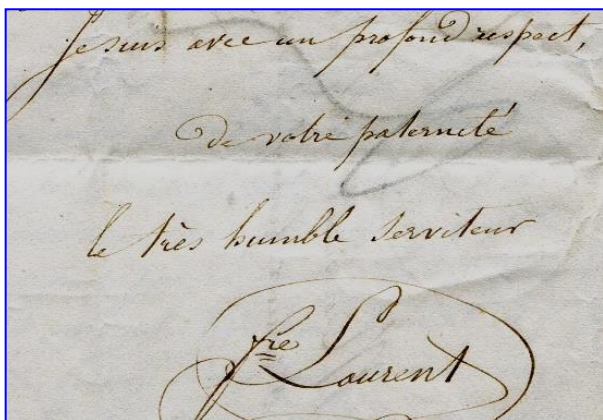 Je suis avec un profond respect,
de votre paternité
le très humble serviteur
fre Laurent